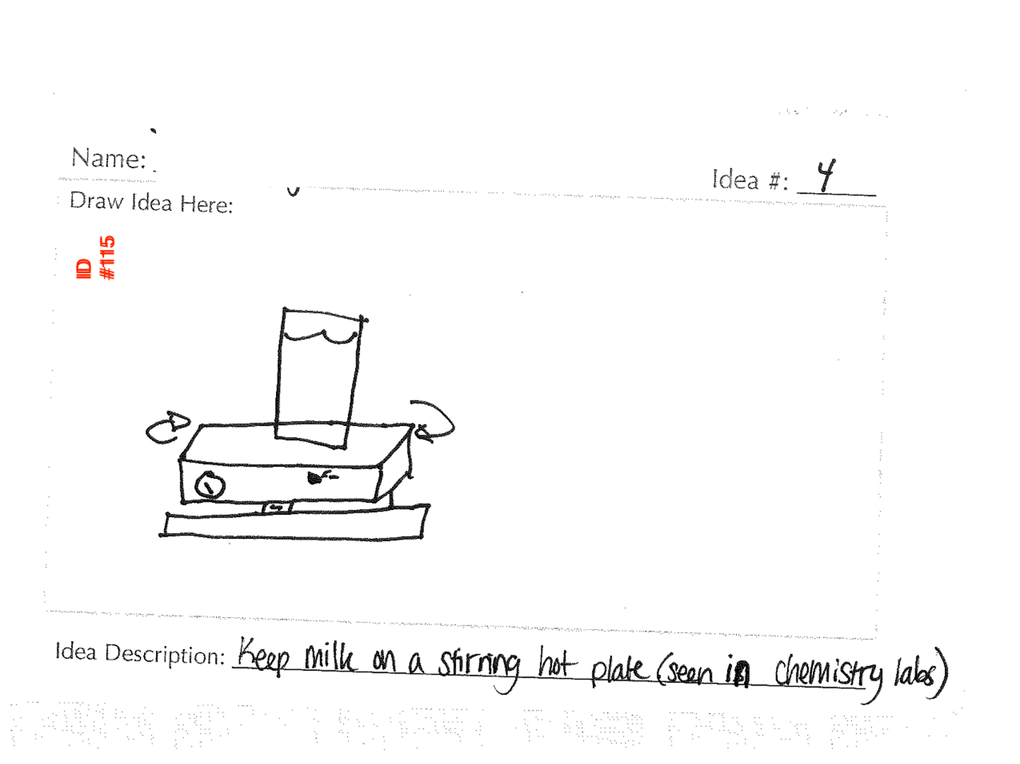 Name:
Idea #: 4
Draw Idea Here:
IID
#115
Idea Description: Keep milk on a stirring hot plate (seen in chemistry labs)